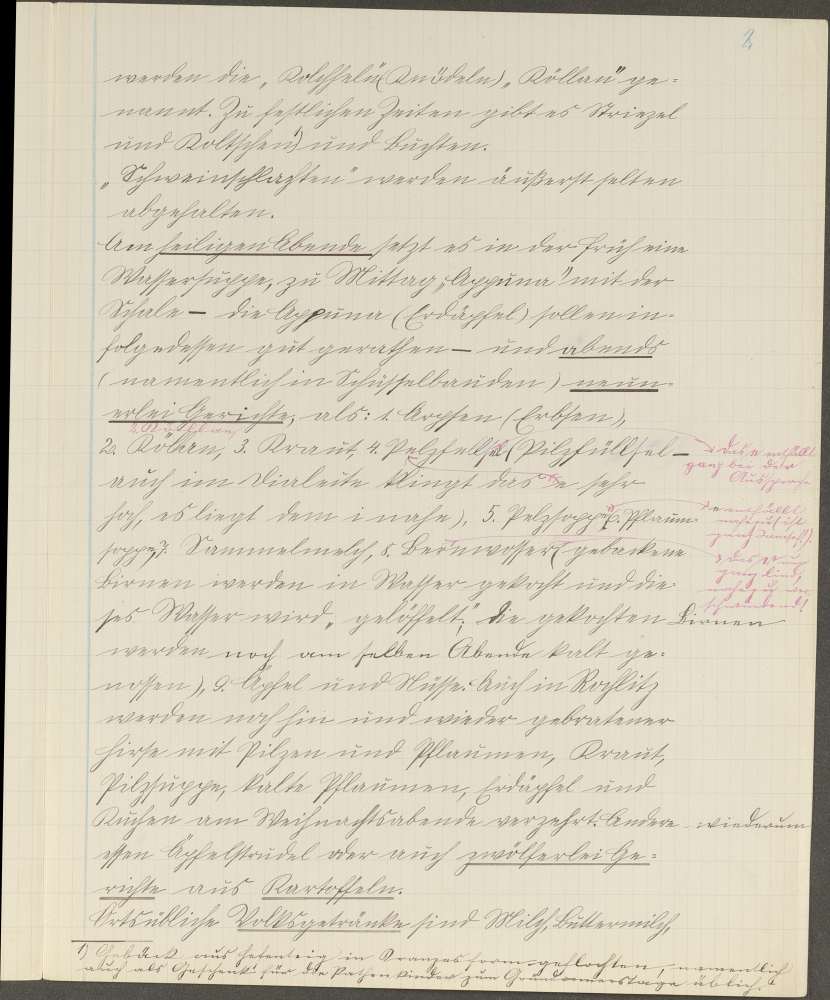 2
werden die „Kolchseln (Knödeln) „Köllan" ge=
nannt. Zu festlichen Zeiten gibt es Striezel
und Koltschen¹) und Buchten.
„Schweinschlachten" werden äußerst selten
abgehalten.
Am heiligen Abende setzt es in der Früh eine
Wassersuppe, zu Mittag „Appuna" mit der
Schale — die Appuna (Erdäpfel) sollen in=
folgedessen gut gerathen — und abends
(namentlich in Schüsselbauden) neun=
erlei Gerichte, als: 1. Arpsen (Erbsen),
2. Kölan, 3. Kraut, 4. Pelzfellsel (Pilzfüllsel —
auch im Dialekte klingt das e sehr
hoch, es liegt dem i nahe), 5. Pelzsoppe, 6. Pflaum=
soppe, 7. Sammelmelch, 8. Beonwosser (gebackene
Birnen werden in Wasser gekocht und die=
ses Wasser wird „gelöffelt;" die gekochten Birnen
werden noch am selben Abende kalt ge=
nossen), 9. Äpfel und Nüsse. Auch in Rochlitz
werden noch hin und wieder gebratener
Hirse mit Pilzen und Pflaumen, Kraut,
Pilzsuppe, kalte Pflaumen, Erdäpfel und
Kuchen am Weihnachtsabende verzehrt. Andere wiederum
essen Äpfelstrudel oder auch zwölferlei Ge=
richte aus Kartoffeln.
Ortsübliche Volksgetränke sind Milch, Buttermilch,
1) Gebäck aus Hefenteig in Kranzesform geflochten, namentlich
auch als Geschenk für die Pathenkinder zum Gründonnerstage üblich.
das e entfällt
ganz bei der
Aussprache